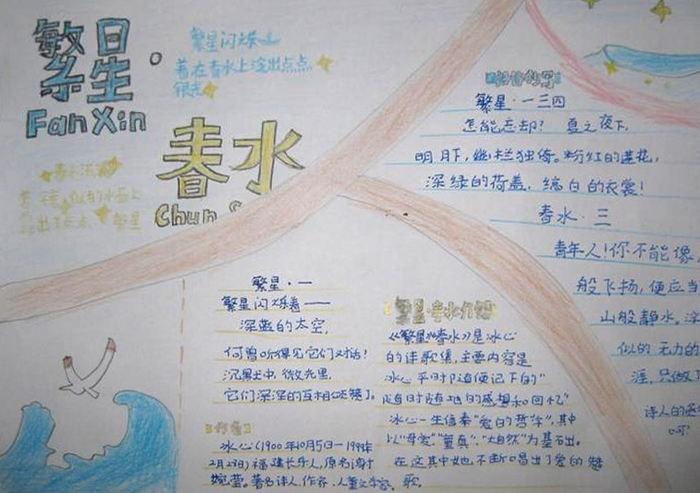 繁星·
Fan Xin
繁星闪烁
着在春水上泛出点点
春水
Chun S
繁星·一三四
怎能忘却？夏之夜下，
明月下，幽栏独倚。粉红的莲花，
深绿的荷盖，缟白的衣裳！
春水·三
青年人！你不能像
般飞扬，便应当
山般静水。
似的无力的
涯，只做了
诗人的
繁星·一
繁星闪烁着——
深蓝的太空，
何曾听得见它们对话！
沉默中，微光里，
它们深深的互相颂赞了。
繁星·春水介绍
《繁星》《春水》是冰心
的诗歌集，主要内容是
冰心平时随便记下的"
随时随地的感想和回忆"
冰心一生信奉"爱的哲学"，其中
以"母爱"，"童真"，"大自然"为基石出。
在这其中她不断唱出了爱的赞
歌。
作者
冰心（1900年10月5日—1999年
2月28日）福建长乐人，原名谢
婉莹。著名诗人，作家，儿童文学家。